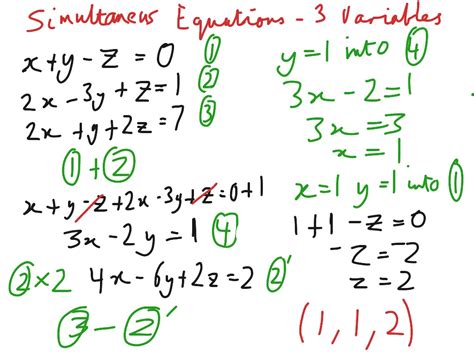 Simultaneus Equations - 3 Variables
x+y-z=0 ①
2x-3y+z=1 ②
2x+y+2z=7 ③
①+②
x+y-z+2x-3y+z=0+1
3x-2y=1 ④
②×2 4x-6y+2z=2 ②'
③-②'
y=1 into ④
3x-2=1
3x=3
x=1
x=1 y=1 into ①
1+1-z=0
-z=-2
z=2
(1,1,2)